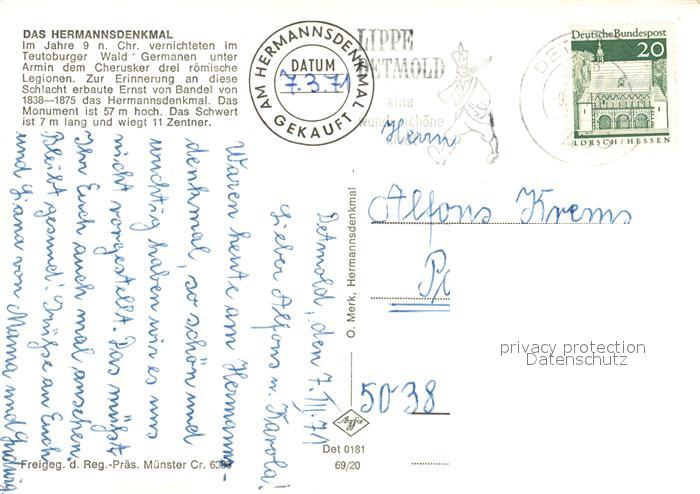 DAS HERMANNSDENKMAL
Im Jahre 9 n. Chr. vernichteten im
Teutoburger Wald Germanen unter
Armin dem Cherusker drei römische
Legionen. Zur Erinnerung an diese
Schlacht erbaute Ernst von Bandel von
1838—1875 das Hermannsdenkmal. Das
Monument ist 57 m hoch. Das Schwert
ist 7 m lang und wiegt 11 Zentner.
AM HERMANNSDENKMAL
DATUM
7.3.71
GEKAUFT
LIPPE
DETMOLD
eine
wunderschöne
Deutsche Bundespost
20
LORSCH/HESSEN
Herrn
Alfons Krems
5038
Detmold, den 7.III.71
Lieber Alfons u. Karola!
Waren heute am Hermanns-
denkmal, so schön und
wuchtig haben wir es uns
nicht vorgestellt. Das müßt
Ihr Euch auch mal ansehen.
Bleibt gesund! Grüße an Euch
und von Mama und Ludwig
O. Merk, Hermannsdenkmal
Agfa
Det 0181
69/20
Freigeg. d. Reg.-Präs. Münster Cr.
privacy protection
Datenschutz